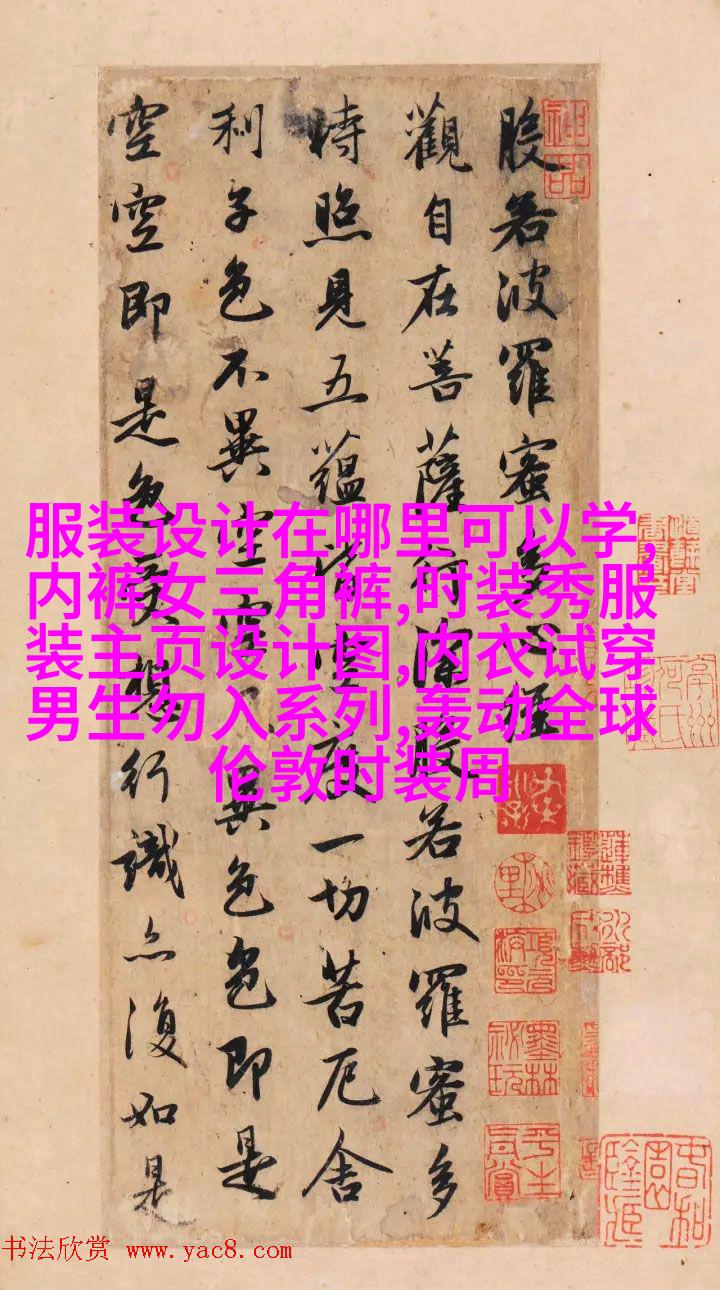 般若波羅蜜多心經
觀自在菩薩行深般若波羅蜜多
時照見五蘊皆空度一切苦厄舍
利子色不異空空不異色色即是
空空即是色受想行識亦復如是
神品
服装设计在哪里可以学,
内裤女三角裤,时装秀服
装主页设计图,内衣试穿
男生勿入系列,轰动全球
伦敦时装周
书法欣赏 www.yac8.com